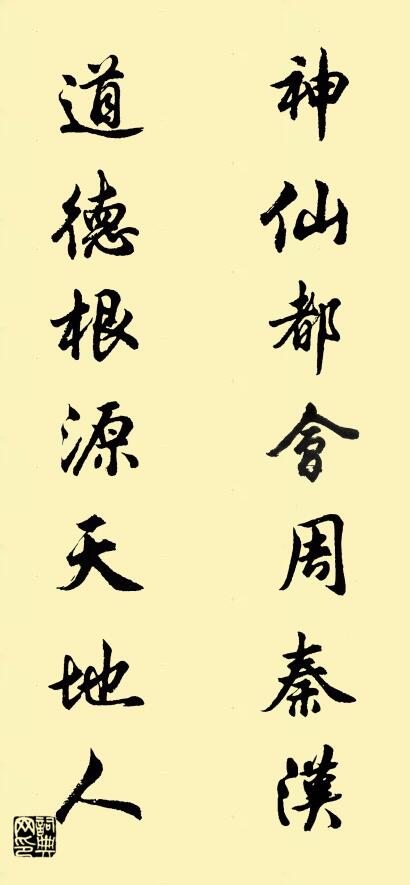 神仙都會周秦漢
道德根源天地人
詞典网印